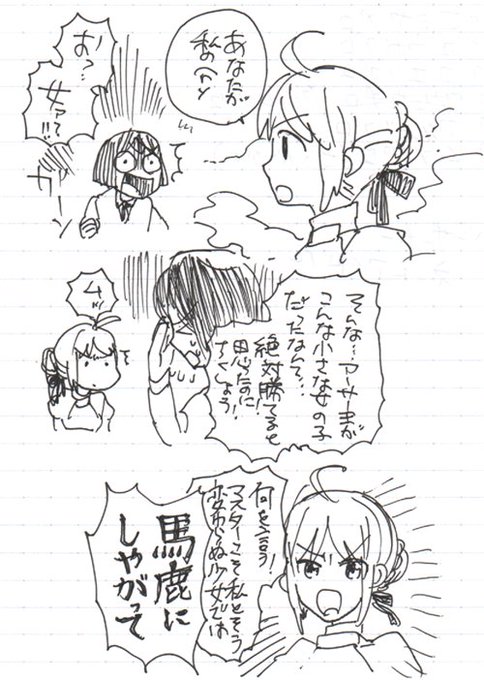 あなたが
私の(ry
お…
女ァ？
!!!
ガーン
そんな…アーサー王が
こんな小さな女の子
だったなんて…
絶対勝てると
思ったのに
ちくしょう!
ムッ
何を言う!
マスターこそ私とそう
変わらぬ少女では
馬鹿に
しやがって